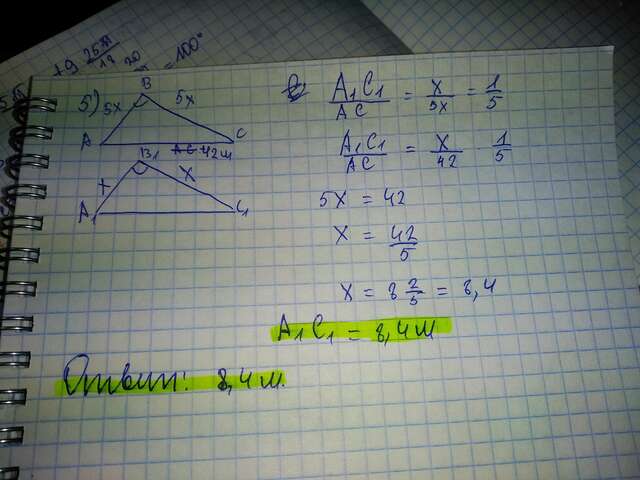 +9 25π/19 20 = 100°
5)
B
5x 5x
A C
AC 42м
B₁
x x
A₁ C₁
A₁C₁/AC = x/5x = 1/5
A₁C₁/AC = x/42 1/5
5x = 42
x = 42/5
x = 8 2/5 = 8,4
A₁C₁ = 8,4м
Ответ: 8,4м.